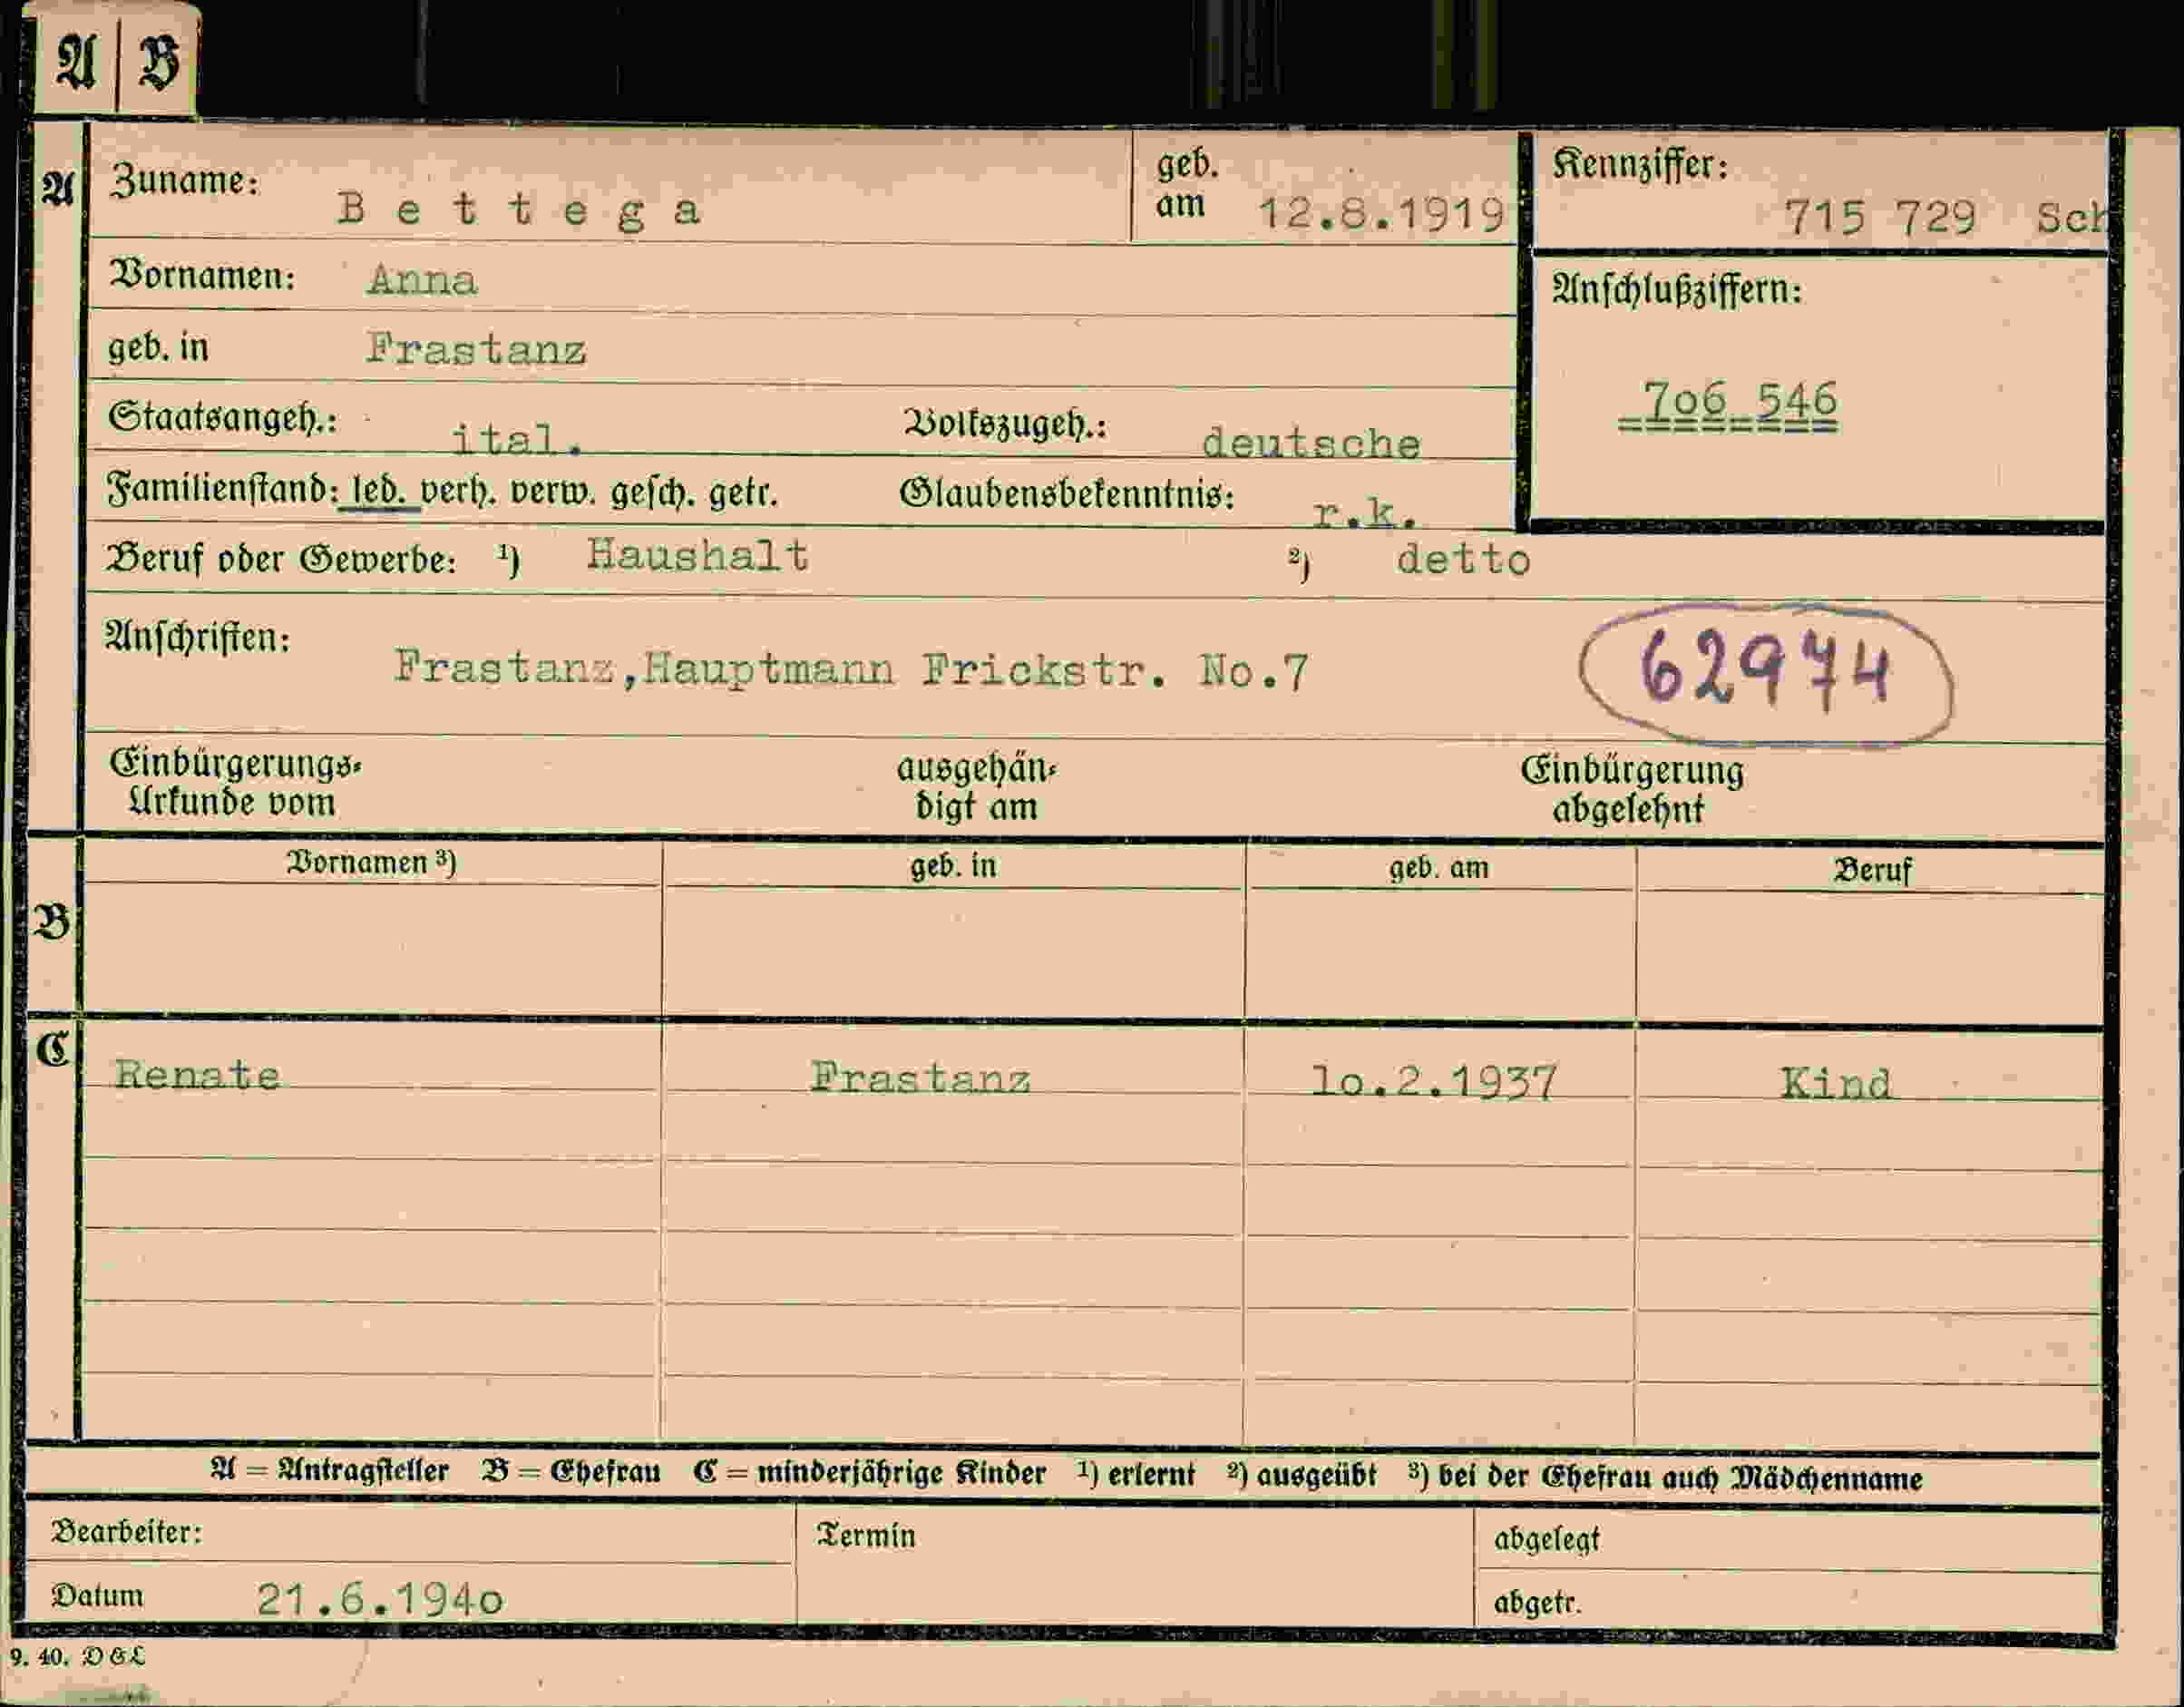 A B
A Zuname: Bettega geb. am 12.8.1919 Kennziffer: 715 729 Sch
Vornamen: Anna Anschlußziffern:
geb. in Frastanz
706 546
Staatsangeh.: ital. Volkszugeh.: deutsche
Familienstand: led. verh. verw. gesch. getr. Glaubensbekenntnis: r.k.
Beruf oder Gewerbe: 1) Haushalt 2) detto
Anschriften: Frastanz,Hauptmann Frickstr. No.7 62974
Einbürgerungs- ausgehän- Einbürgerung
Urkunde vom digt am abgelehnt
Vornamen 3) geb. in geb. am Beruf
B
C Renate Frastanz 10.2.1937 Kind
A = Antragsteller B = Ehefrau C = minderjährige Kinder 1) erlernt 2) ausgeübt 3) bei der Ehefrau auch Mädchenname
Bearbeiter: Termin abgelegt
Datum 21.6.1940 abgetr.
9. 40. D & L